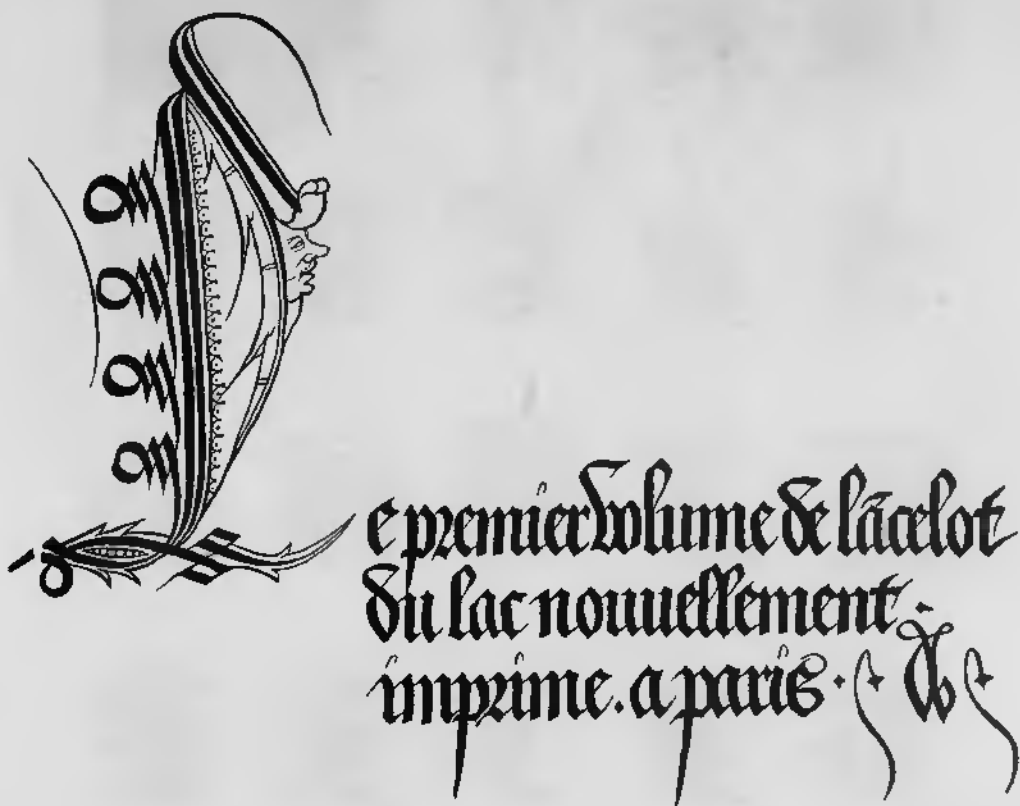 Le premier volume de lãcelot
du lac nouuellement
imprime. a paris.